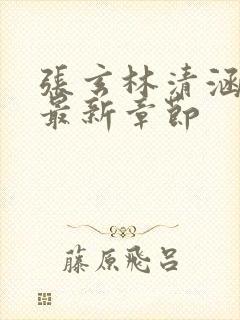 張玄林清涵
最新章節
藤原飛呂